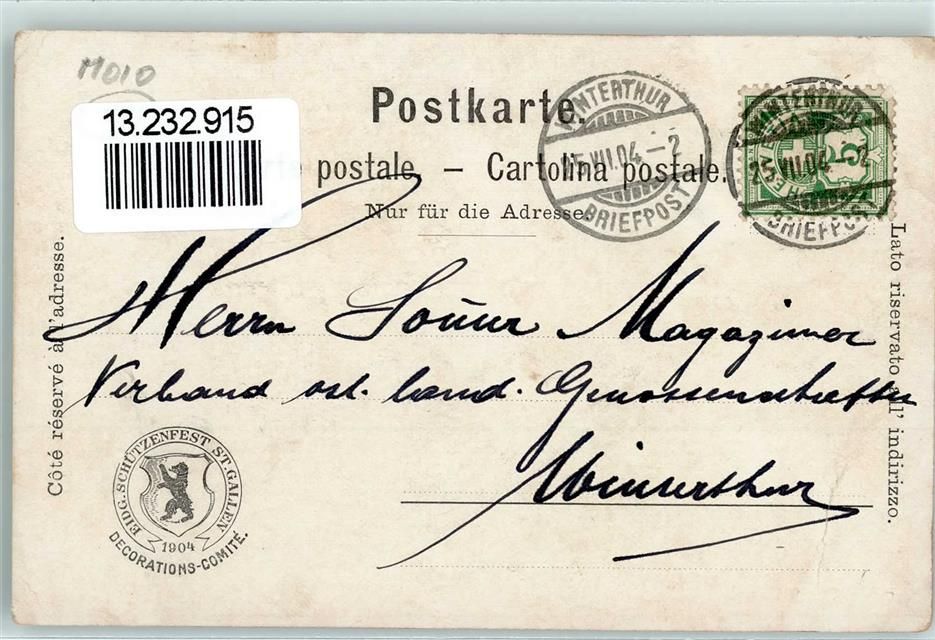 M010
13.232.915
Postkarte.
postale. – Cartolina postale.
Nur für die Adresse.
WINTERTHUR
25.VII.04 – 2
BRIEFPOST
WINTERTHUR
25.VII.04 – 2
BRIEFPOST
5
Côté réservé à l'adresse.
Lato riservato all' indirizzo.
Herrn Magaziner
Verband ost. land. Genossenschaften
Winterthur
EIDG. SCHÜTZENFEST ST. GALLEN
1904
DECORATIONS-COMITÉ.